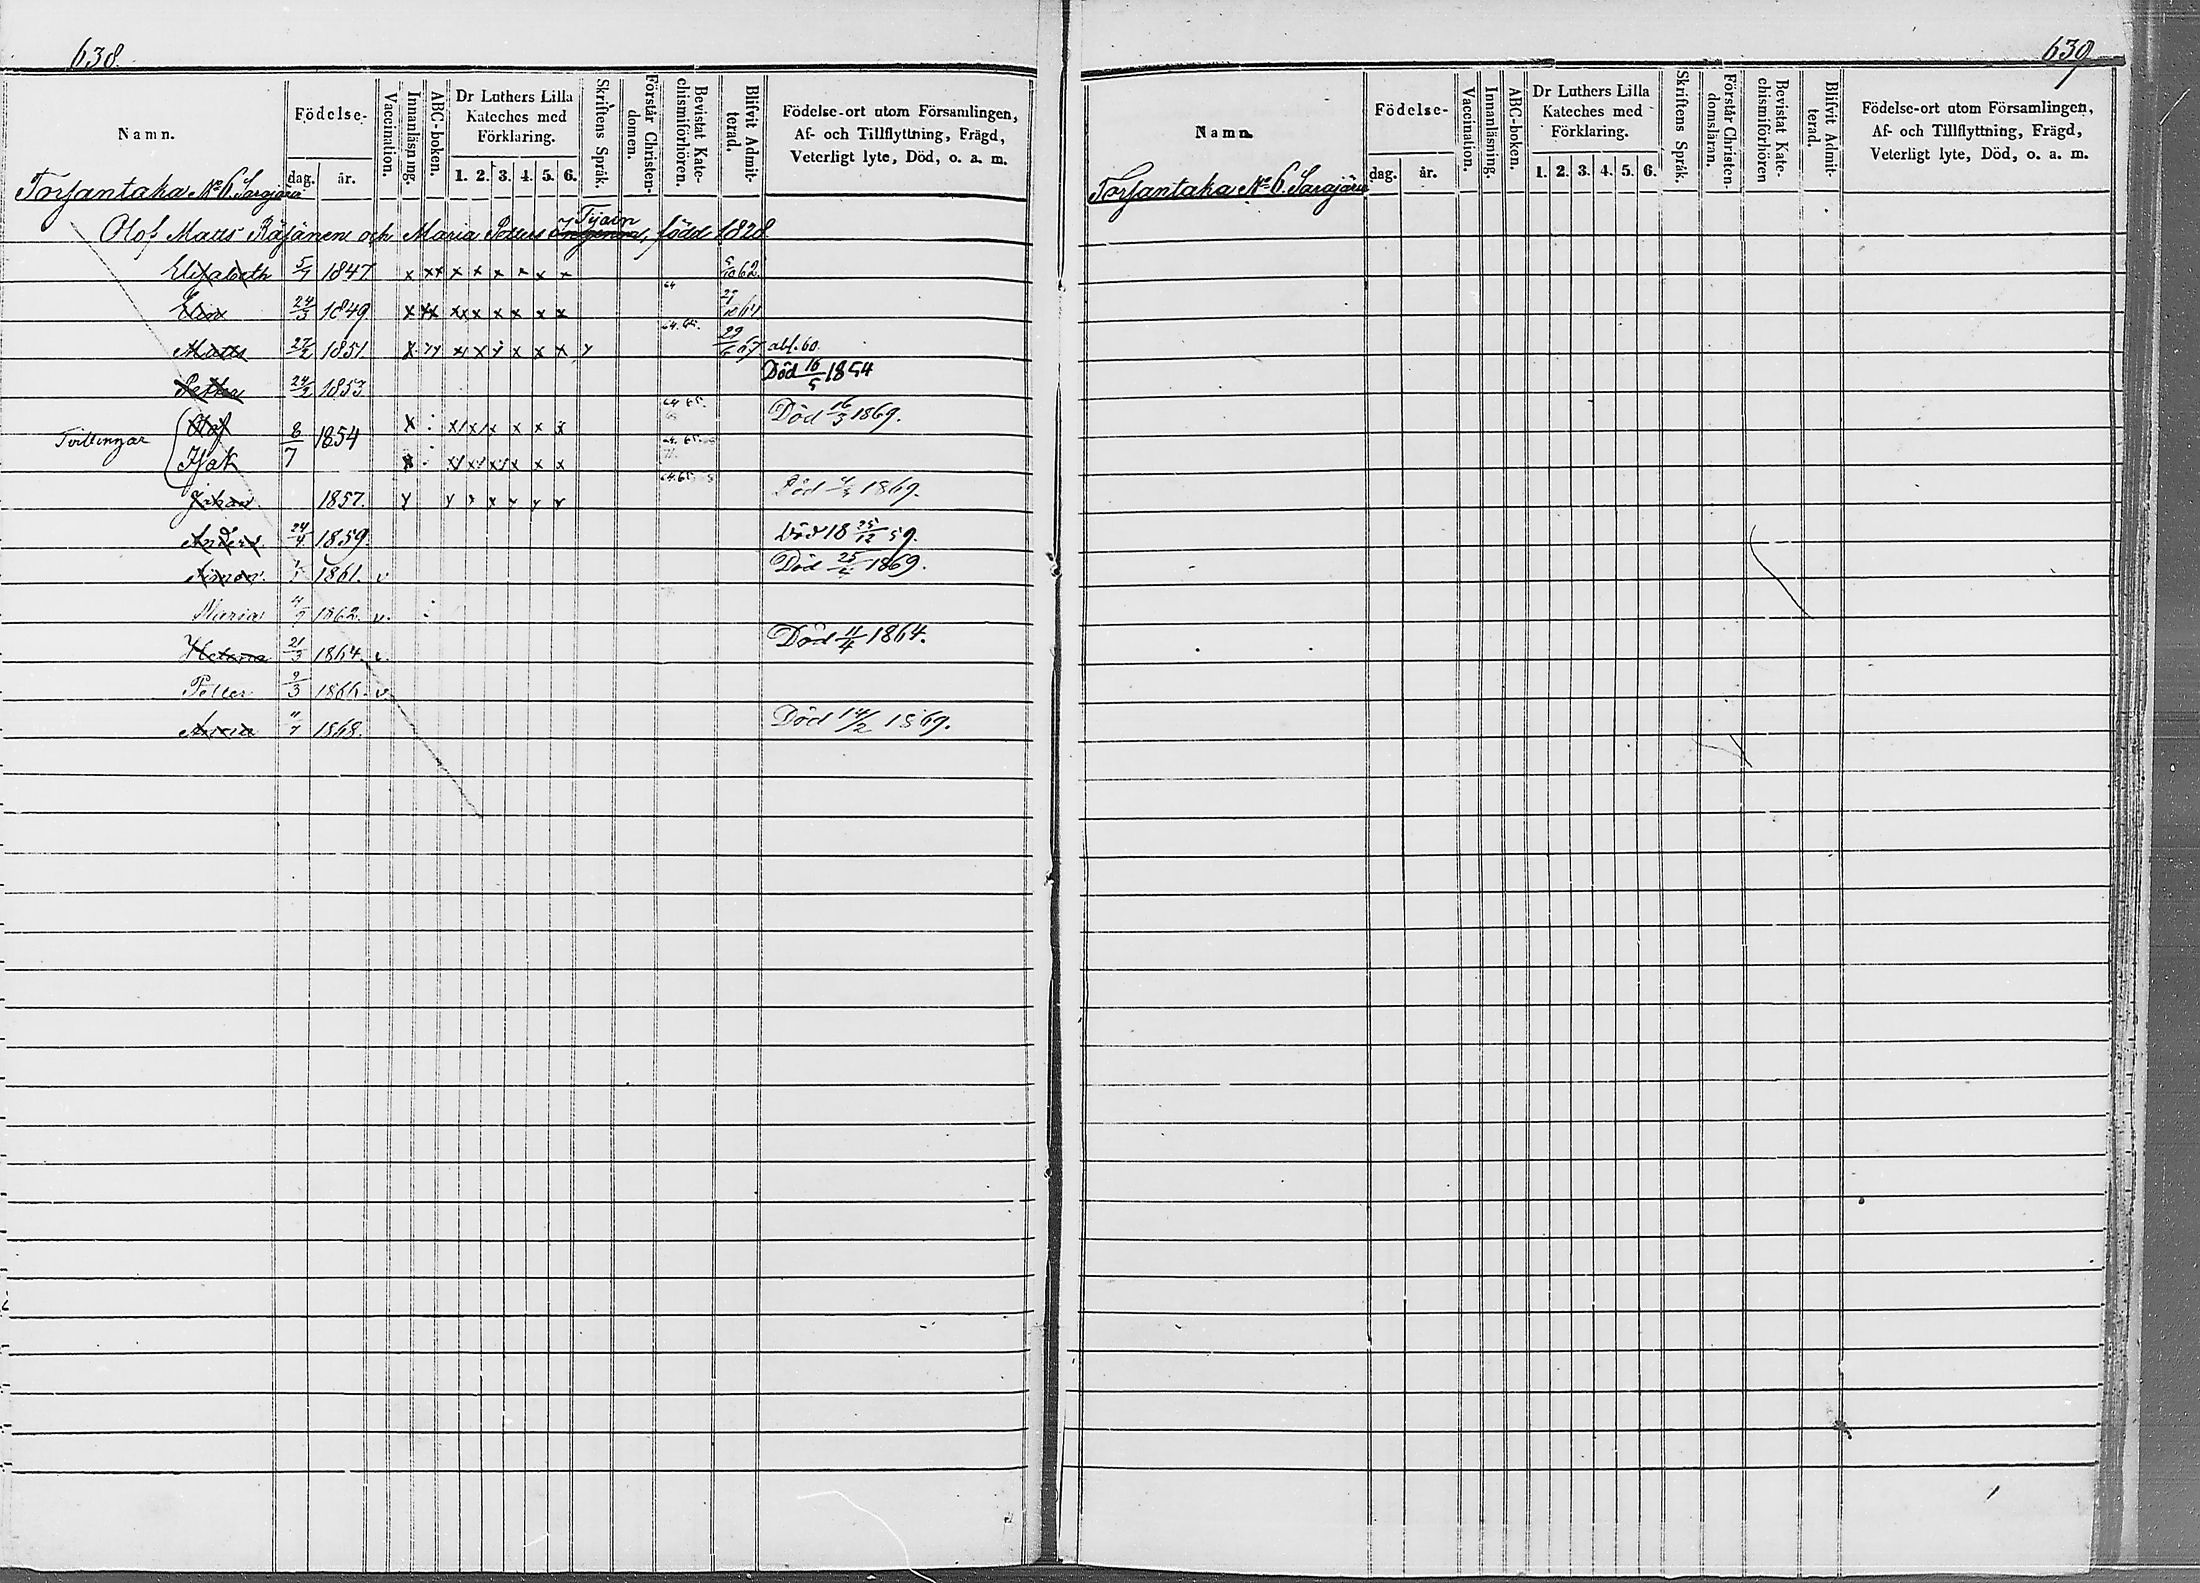 638.
Namn.
Födelse-
dag. år.
Vaccination.
Innanläsning.
ABC-boken.
Dr Luthers Lilla
Kateches med
Förklaring.
1. 2. 3. 4. 5. 6.
Skriftens Språk.
Förstår Christen-
domen.
Bevistat Kate-
chismiförhören.
Blifvit Admit-
terad.
Födelse-ort utom Församlingen,
Af- och Tillflyttning, Frägd,
Veterligt lyte, Död, o. a. m.
Torsantaka No 6. Sarajärvi
Tijain
Olof Matts Räjänen och Maria Petters född 1828
Elisabeth 5/9 1847 x xx x x x x x x 62.
Elin 24/3 1849. x xx xx x x x x x 64
Matts 27/2 1851. x yy x x y x x x y 29/6 67 abs. 60.
Petter 24/2 1853 Död 16/5 1854
Tvillingar
Olof 8/7 1854 x : x/ x/ x x x x 64. 65. Död 16/3 1869.
Isak x : x/ x/ x/ x x x 64. 65.
Johan 1857. y y y x y y y 64. 65 Död 1869.
Anders 24/4 1859. Död 18 25/12 59.
Simon. 1861. v Död 25/4 1869.
Maria 4/9 1862. v. :
Helena 21/3 1864. v. Död 11/4 1864.
Petter 9/3 1866. v
Anna 11/7 1868. Död 14/2 1869.
639
Namn.
Födelse-
dag. år.
Vaccination.
Innanläsning.
ABC-boken.
Dr Luthers Lilla
Kateches med
Förklaring.
1. 2. 3. 4. 5. 6.
Skriftens Språk.
Förstår Christen-
domsläran.
Bevistat Kate-
chismiförhören
Blifvit Admit-
terad.
Födelse-ort utom Församlingen,
Af- och Tillflyttning, Frägd,
Veterligt lyte, Död, o. a. m.
Torsantaka No 6. Sarajärvi